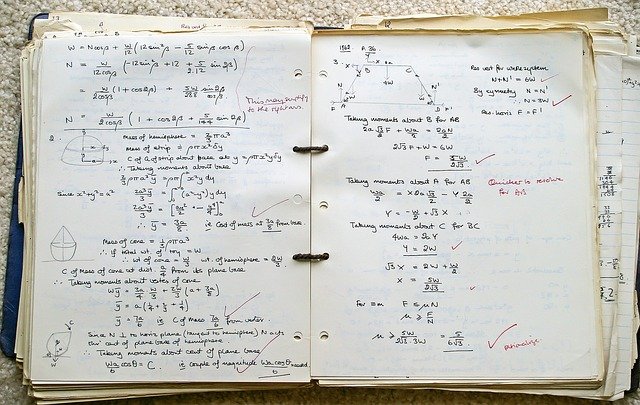 W = Ncosβ + W/12 (12 sin²β - 5/12 sinβ cosβ)
N = W/12cosβ (-12sin²β + 12 + 5/2.12 sin 2β)
= W/2cosβ (1 + cos2β) + 5W/288 sin2β/cosβ
N = W/2cosβ (1 + cos2β + 5/144 sin 2β)
This may simplify
to the
2.
Mass of hemisphere = 2/3 ρπa³
Mass of strip = ρπx²δy
C of G of strip about base at y = ρπx²yδy
∴ Taking moments about base
2/3 ρπa³ȳ = ρπ∫x²y dy
Since x²+y²=a²
2a³ȳ/3 = ∫(a²-y²)y dy
2a³ȳ/3 = [a²y²/2 - y⁴/4]
∴ ȳ = 3a/8 ie C of mass at 3a/8 from base
Mass of cone = 1/3 ρπa³
∴ if total wt of toy = W
∴ wt of cone = W/3 wt of hemisphere = 2W/3
C of Mass of cone at dist. a/4 from its plane base
∴ Taking moments about vertex of cone
Wȳ = 3a/4 W/3 + 2W/3 (a + 3a/8)
ȳ = a(1/4 + 2/3 + 1/4)
ȳ = 7a/6 ie C of Mass 7a/6 from vertex
Since N ⊥ to horiz plane (tangent to hemisphere) N acts
thro' cent of plane base of hemisphere
∴ Taking moments about cent of plane base
Wa/6 cosθ = C. ie couple of magnitude Wa cosθ/6 needed
1962 A 36
3.
Res vert for whole system
N+N' = 6W
By symmetry N = N'
∴ N = 3W
Res horiz F = F'
Taking moments about B for AB
2a√3/2 F + Wa/2 = 2aN/2
2√3F + W = 6W
F = 5W/2√3
Taking moments about A for AB
Wa/2 = X 2a√3/2 - Y 2a/2
Quicker to resolve
for AB
Y = -W/2 + √3X
Taking moments about C for BC
4Wa = 2aY
Y = 2W
√3X = 2W + W/2
X = 5W/2√3
For F ≤ μN
μ ≥ F/N
μ ≥ 5W/2√3.3W = 5/6√3